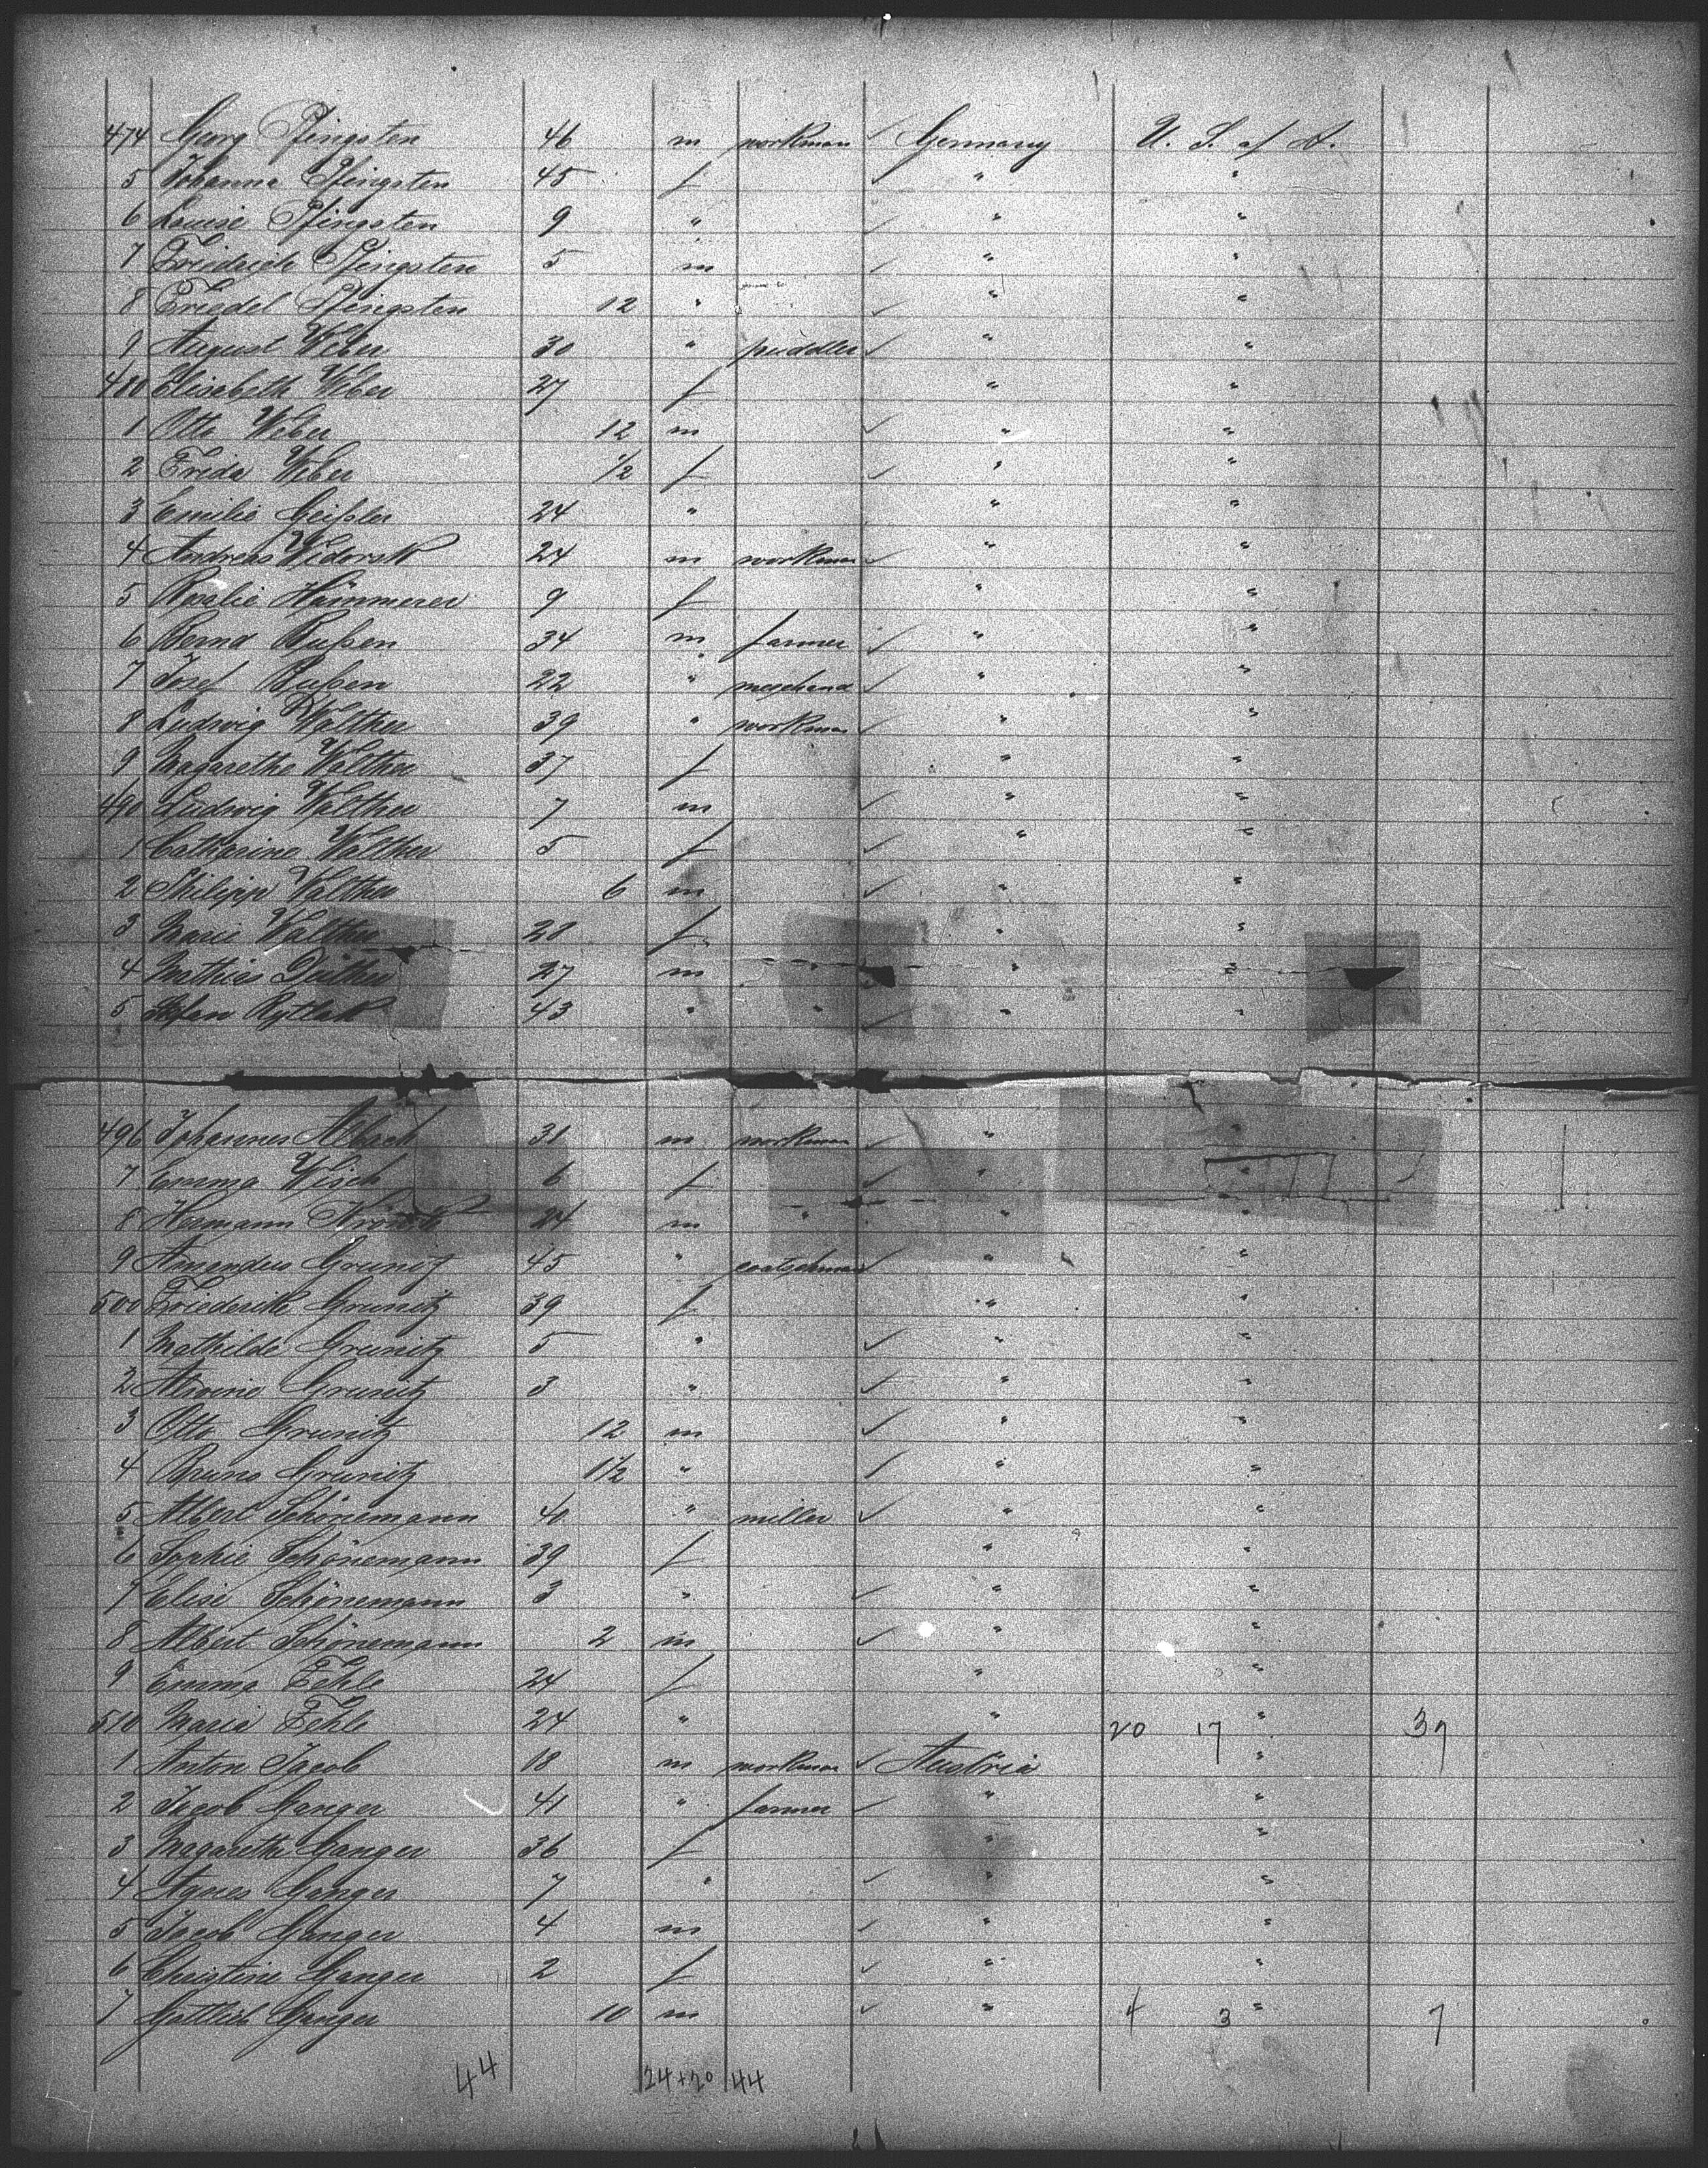 474 Georg Pfingsten 46 m workman ✓ Germany U. S. of A.
5 Johanna Pfingsten 45 f ✓ " "
6 Louise Pfingsten 9 " ✓ " "
7 Friedrich Pfingsten 5 m ✓ " "
8 Friedel Pfingsten 12 " ✓ " "
9 August Weber 30 " puddler ✓ " "
480 Elisabeth Weber 27 f " "
1 Otto Weber 12 m ✓ " "
2 Frida Weber 1/2 f ✓ " "
3 Emilie Geißler 24 " " "
4 Andreas 24 m workman ✓ " "
5 Rosalie Hämmerer 9 f " "
6 Bernd Bußen 34 m farmer ✓ " "
7 Josef Bußen 22 " ✓ " "
8 Ludwig Walther 39 " workman ✓ " "
9 Magarethe Walther 37 f " "
490 Ludwig Walther 7 m ✓ " "
1 Catharine Walther 5 f ✓ " "
2 Philipp Walther 6 m ✓ " "
3 Marie Walther 20 f " "
4 Mathias 27 m " "
5 43 " " ✓ " "
496 Johannes 31 m workman ✓ " "
7 Emma Wisch 6 f ✓ " "
8 Hermann 24 m " " "
9 Amandus Grunitz 45 " ✓ " "
500 Friederike Grunitz 39 f " "
1 Mathilde Grunitz 5 " ✓ " "
2 Alwine Grunitz 3 " ✓ " "
3 Otto Grunitz 12 m ✓ " "
4 Bruno Grunitz 1 1/2 " ✓ " "
5 Albert Schönemann 40 " miller ✓ " "
6 Sophie Schönemann 39 f " "
7 Elise Schönemann 3 " ✓ " "
8 Albert Schönemann 2 m ✓ " "
9 Emma Fehle 24 f " "
510 Maria Fehle 24 " " 20 17 " 37
1 Anton Jacob 18 m workman ✓ Austria "
2 Jacob Ganger 41 " farmer ✓ " "
3 Magarethe Ganger 36 f " "
4 Agnes Ganger 7 " ✓ " "
5 Jacob Ganger 4 m ✓ " "
6 Christine Ganger 2 f ✓ " "
7 Gottlieb Ganger 10 m ✓ " 4 3 " 7
44 24+20 44